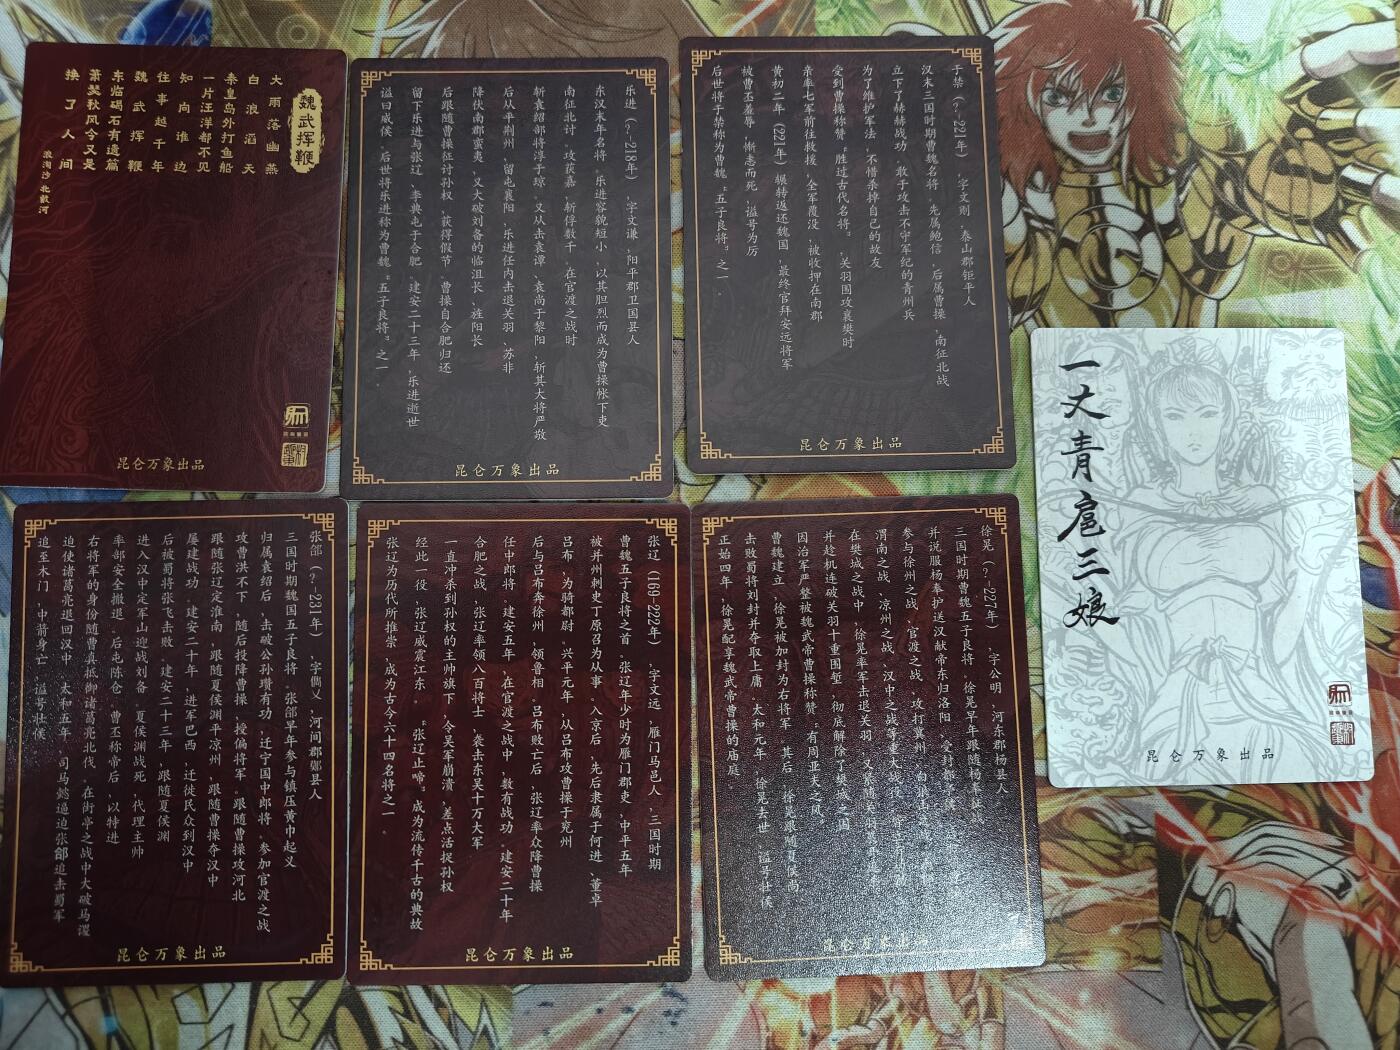 魏武挥鞭
大雨落幽燕
白浪滔天
秦皇岛外打鱼船
一片汪洋都不见
知向谁边
往事越千年
魏武挥鞭
东临碣石有遗篇
萧瑟秋风今又是
换了人间
浪淘沙 北戴河
昆仑万象出品
乐进(?-218年),字文谦,阳平郡卫国县人
东汉末年名将。乐进容貌短小,以其胆烈而成为曹操帐下吏
南征北讨。攻获嘉,斩俘数千,在官渡之战时
斩袁绍部将淳于琼。又从击袁谭、袁尚于黎阳,斩其大将严敬
后从平荆州,留屯襄阳,乐进任内击退关羽、苏非
降伏南郡蛮夷,又大破刘备的临沮长、旌阳长
后跟随曹操征讨孙权,获得假节。曹操自合肥归还
留下乐进与张辽、李典屯于合肥。建安二十三年,乐进逝世
谥曰威侯。后世将乐进称为曹魏“五子良将”之一。
昆仑万象出品
于禁(?-221年),字文则,泰山郡钜平人
汉末三国时期曹魏名将。先属鲍信,后属曹操,南征北战
立下了赫赫战功。敢于攻击不守军纪的青州兵
为了维护军法,不惜杀掉自己的故友
受到曹操称赞“胜过古代名将”。关羽围攻襄樊时
亲率七军前往救援,全军覆没,被收押在南郡
黄初二年(221年)辗转返还魏国,最终官拜安远将军
被曹丕羞辱,惭恚而死,谥号为厉
后世将于禁称为曹魏“五子良将”之一。
昆仑万象出品
张郃(?-231年),字儁乂,河间郡鄚县人
三国时期魏国五子良将。张郃早年参与镇压黄巾起义
归属袁绍后,击破公孙瓒有功,迁宁国中郎将。参加官渡之战
攻曹洪不下,随后投降曹操,授偏将军。跟随曹操攻河北
跟随张辽定淮南,跟随夏侯渊平凉州,跟随曹操夺汉中
屡建战功。建安二十年,进军巴西,迁徙民众到汉中
后被蜀将张飞击败。建安二十三年,跟随夏侯渊
进入汉中定军山迎战刘备。夏侯渊战死,代理主帅
率部安全撤退。后屯陈仓。曹丕称帝后,以特进
右将军的身份随曹真抵御诸葛亮北伐。在街亭之战中大破马谡
迫使诸葛亮退回汉中。太和五年,司马懿逼迫张郃追击蜀军
追至木门,中箭身亡,谥号壮侯
昆仑万象出品
张辽(169-222年),字文远,雁门马邑人,三国时期
曹魏五子良将之首。张辽年少时为雁门郡吏,中平五年
被并州刺史丁原召为从事。入京后,先后隶属于何进、董卓
吕布,为骑都尉。兴平元年,从吕布攻曹操于兖州
后与吕布奔徐州,领鲁相。吕布败亡后,张辽率众降曹操
任中郎将。建安五年,在官渡之战中,数有战功。建安二十年
合肥之战,张辽率领八百将士,袭击东吴十万大军
一直冲杀到孙权的主帅旗下,令吴军崩溃,差点活捉孙权
经此一役,张辽威震江东。“张辽止啼”成为流传千古的典故
张辽为历代所推崇,成为古今六十四名将之一。
昆仑万象出品
徐晃(?-227年),字公明,河东郡杨县人
三国时期曹魏五子良将。徐晃早年跟随杨奉
并说服杨奉护送汉献帝东归洛阳,受封都
参与徐州之战、官渡之战、攻打冀州、
渭南之战、凉州之战、汉中之战等重大战役
在樊城之战中,徐晃率军击退关羽,又
并趁机连破关羽十重围堑,彻底解除了樊城之围
因治军严整被魏武帝曹操称赞“有周亚夫之风”
曹魏建立,徐晃被加封为右将军。其后,徐晃跟随夏侯尚
击败蜀将刘封并夺取上庸。太和元年,徐晃去世,谥号壮侯
正始四年,徐晃配享魏武帝曹操的庙庭。
昆仑万象出品
一丈青扈三娘
昆仑万象出品